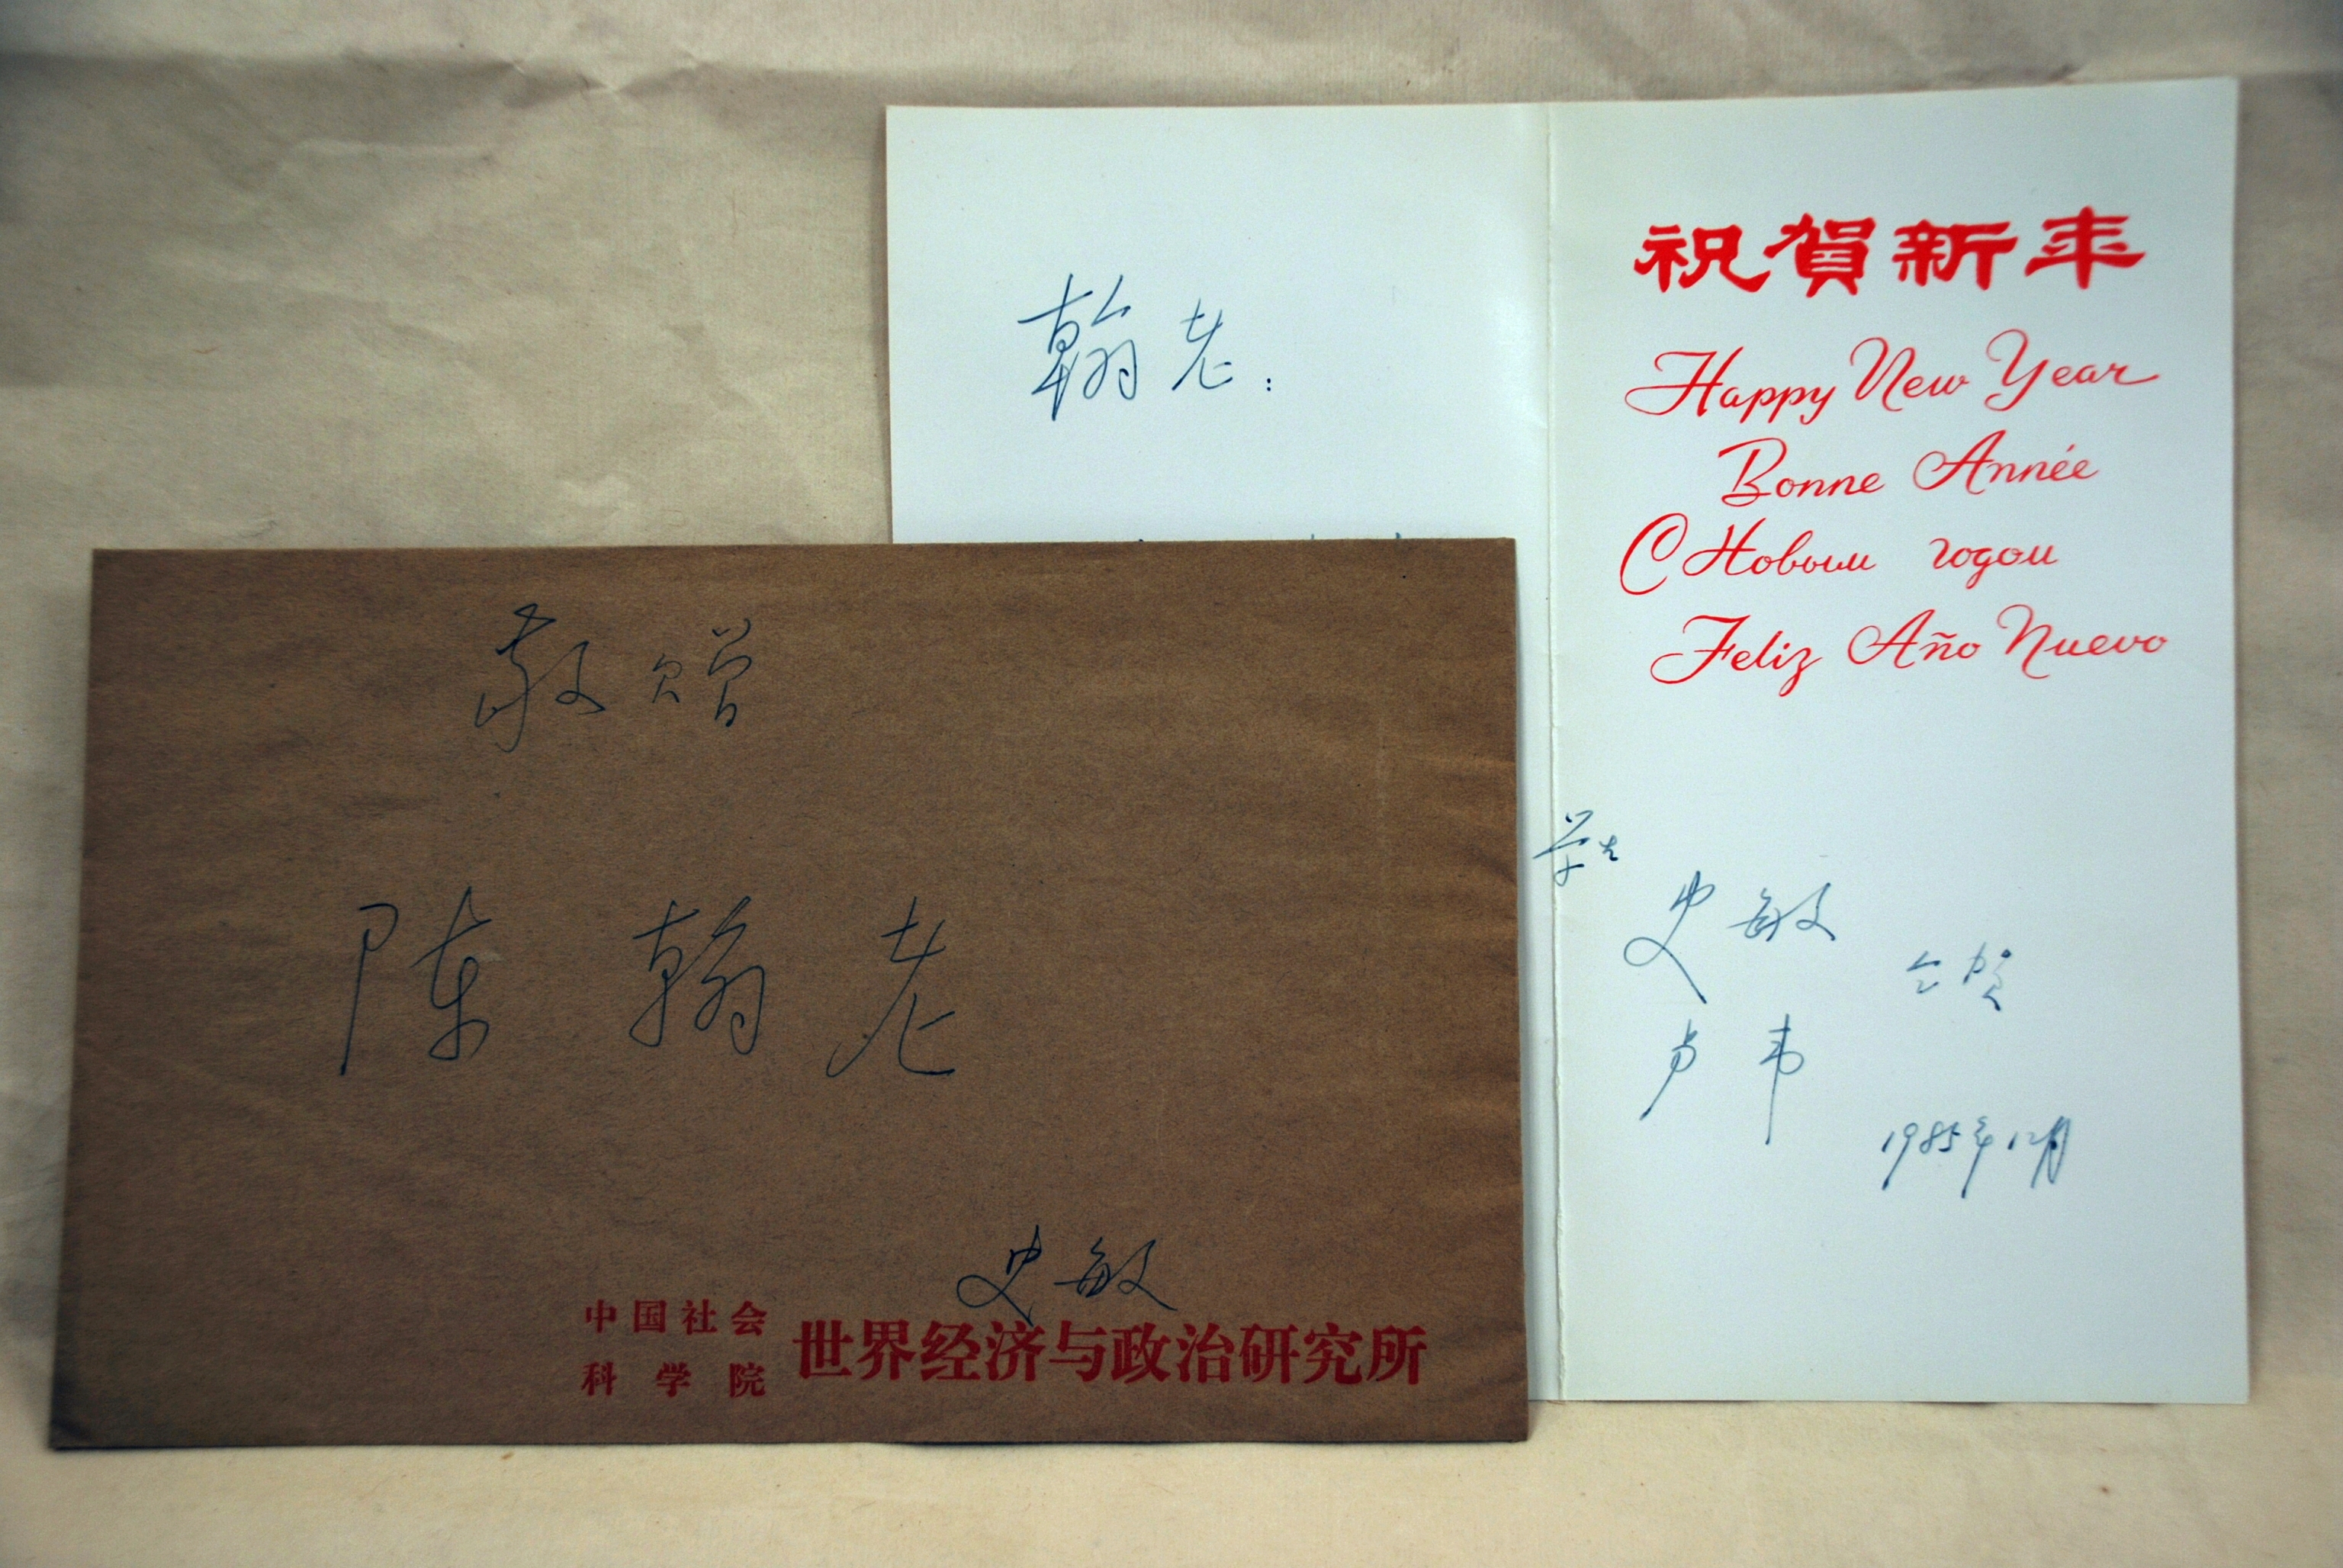 翰老:
祝賀新年
Happy New Year
Bonne Année
С Новым годом
Feliz Año Nuevo
学生
史敏
卢韦
仝贺
1985年12月
敬赠
陈翰老
史敏
中国社会
科学院
世界经济与政治研究所